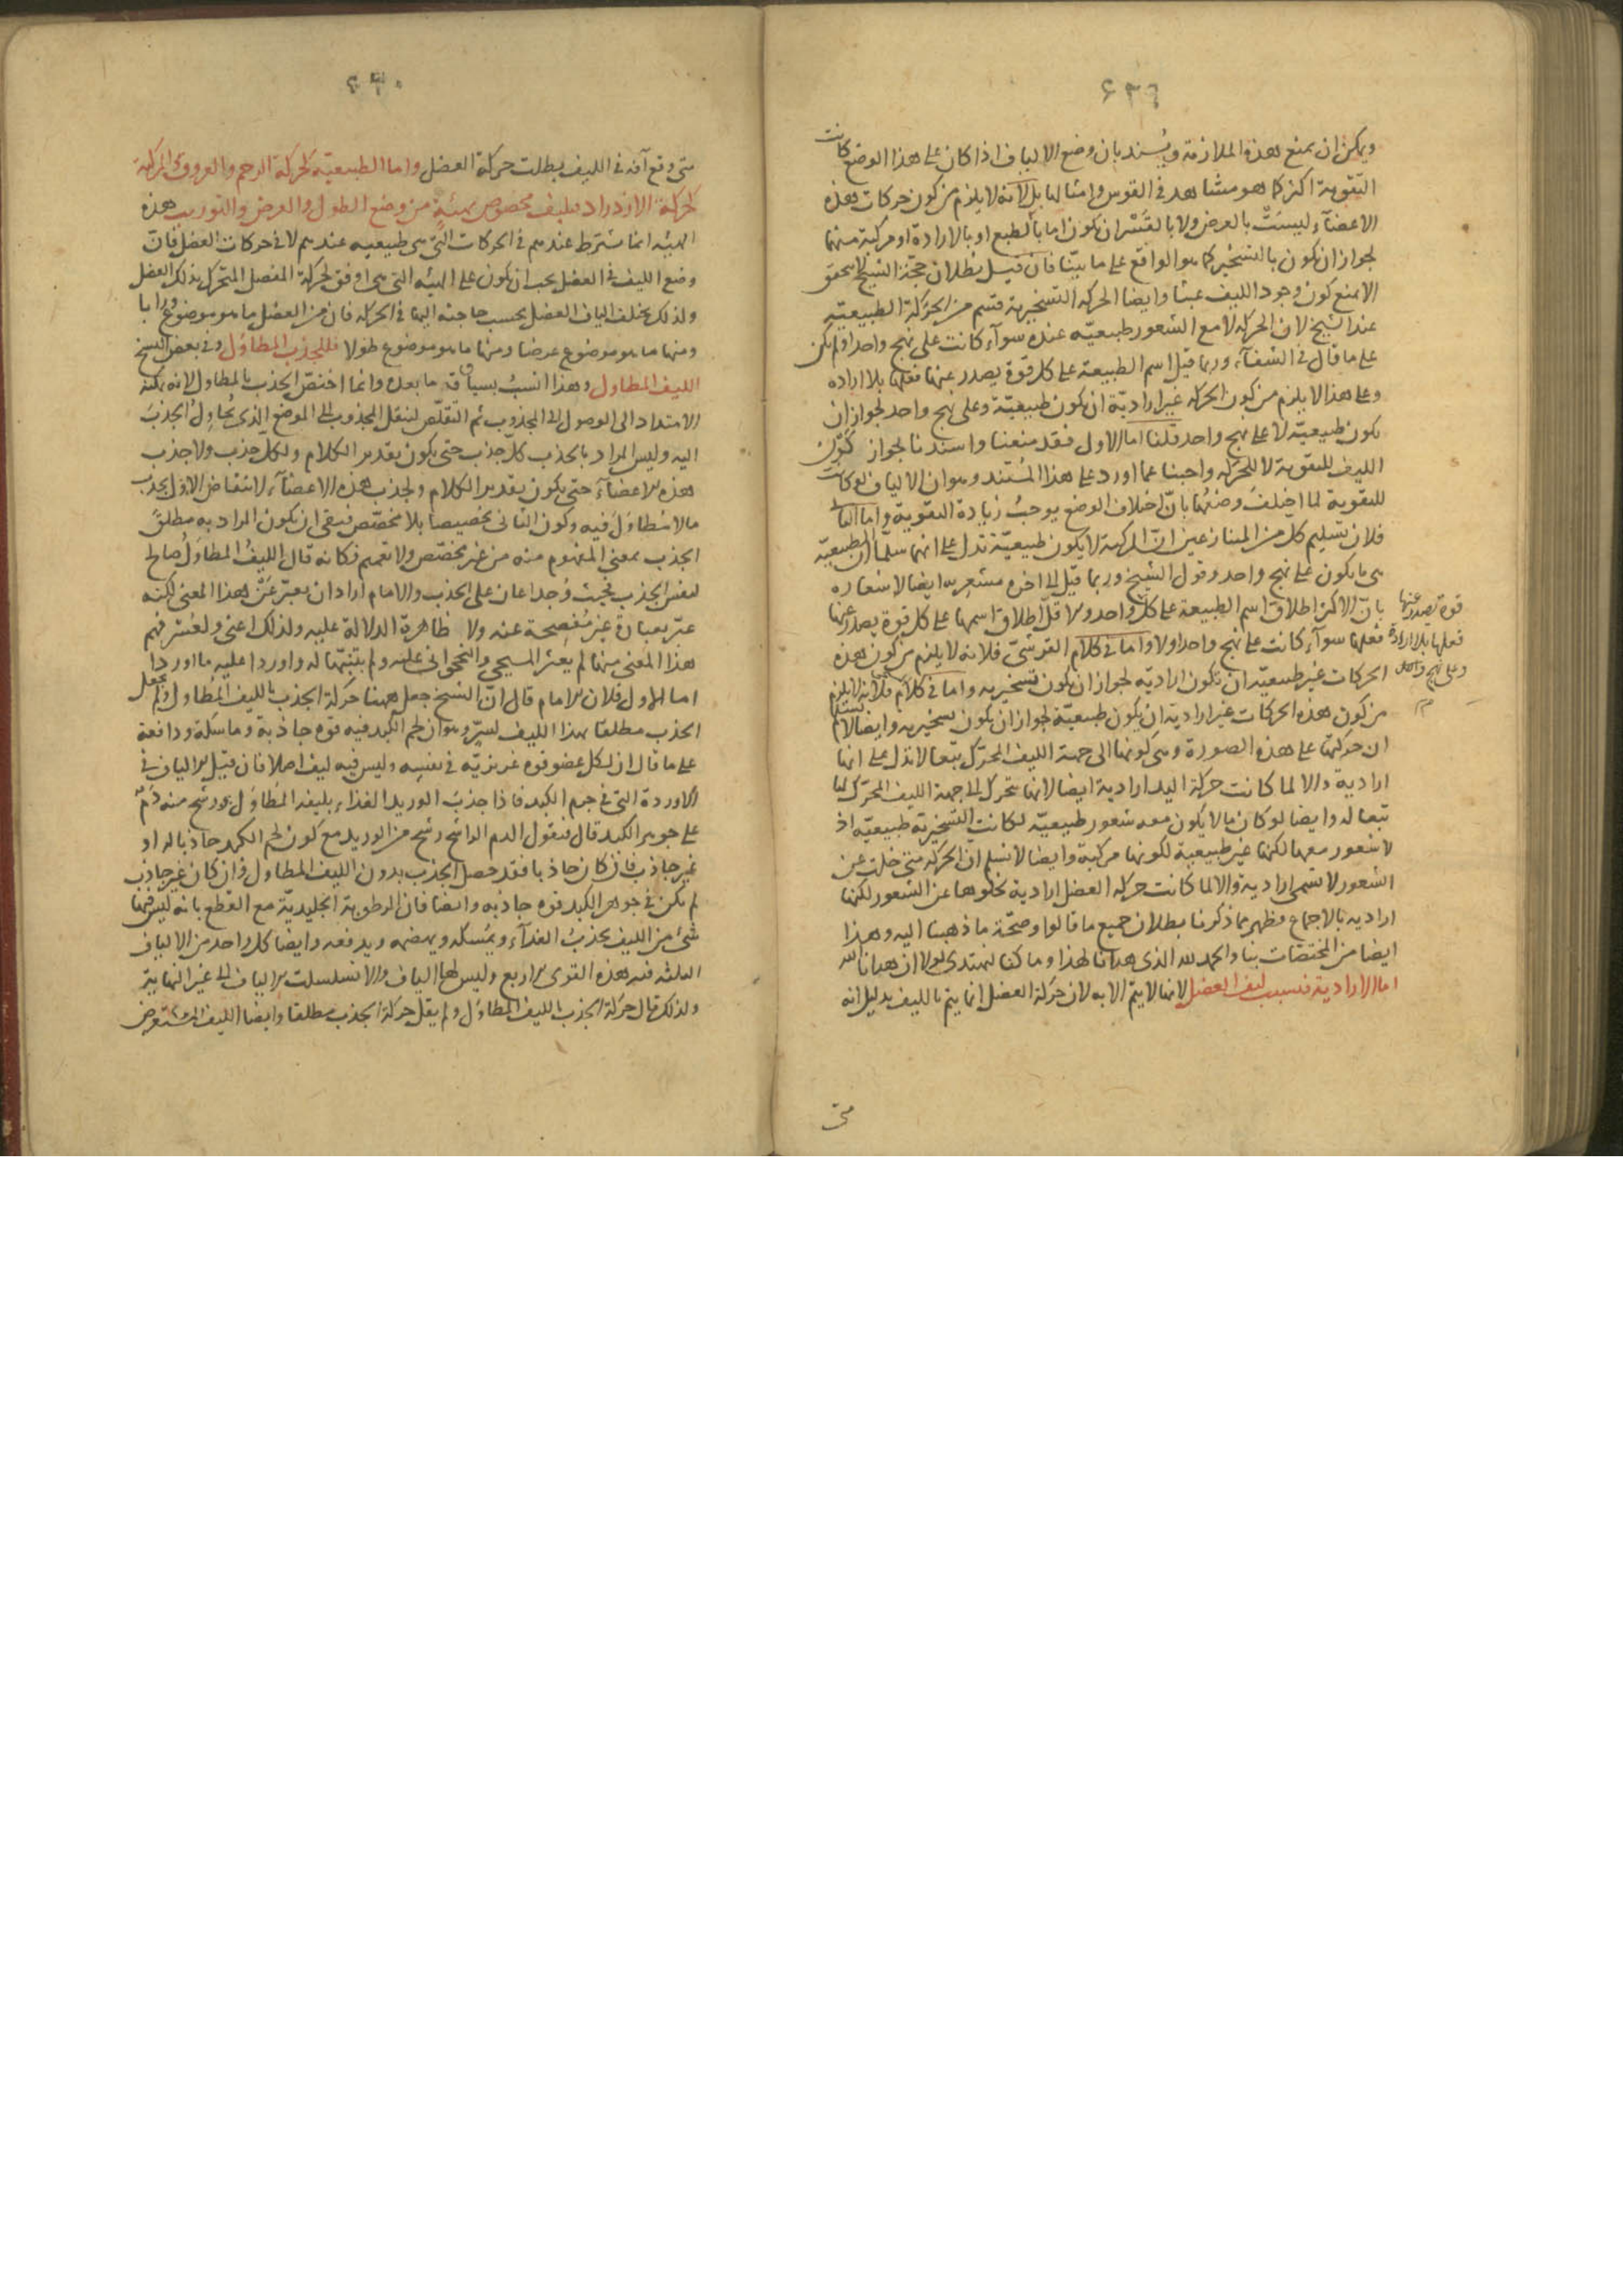 ٤٣٩
ويمكن ان يمنع هذه الملازمة ويسند بان وضع الالياف اذا كان على هذا الوضع كانت
التقوية اكثر كما هو مشاهد في القوس وامثالها بل لانه لا يلزم من كون حركات هذه
الاعضآء ليست بالعرض ولا بالقسر ان يكون اما بالطبع او بالارادة او مركبة منهما
لجواز ان يكون بالتسخير كما هو الواقع على ما بيّنا فان قيل بطلان حجة الشيخ لا يتحقق
الا بمنع كون وجود الليف عبثا وايضا الحركة التسخيرية قسم من الحركة الطبيعية
عند الشيخ لان الحركة لا مع الشعور طبيعيّه عنده سوآء كانت على نهج واحد او لم يكن
على ما قال في الشفآء وربما قيل اسم الطبيعة على كل قوة يصدر عنها فعلها بلا اراده
وعلى هذا لا يلزم من كون الحركة غير ارادية ان يكون طبيعيّة وعلى نهج واحد لجواز ان
يكون طبيعيّة لا على نهج واحد قلنا اما الاول فقد منعنا واسندنا لجواز كون
الليف للتقوية لا للحركة واجبنا عما اورد على هذا المستند وهو ان الالياف لو كانت
للتقوية لما اختلف وضعها بانّ اختلاف الوضع يوجب زيادة التقوية واما الثاني
فلان تسليم كل من المتنازعين انّ المركبة لا يكون طبيعيّة تدل على انهما سلّما ان الطبيعيّة
هي ما يكون على نهج واحد وقول الشيخ وربما قيل الى اخره مشعر به ايضا لاشعاره
بانّ الاكثر اطلاق اسم الطبيعة على كل واحد والاقلّ اطلاق اسمها على كل قوة يصدر عنها
فعلها سوآء كانت على نهج واحد اولا واما في كلام القرشيّ فلانه لا يلزم من كون هذه
الحركات غير طبيعيّه ان يكون اراديّة لجواز ان يكون تسخيريه واما في كلام فلانه لا يلزم
من كون هذه الحركات غير ارادية ان يكون طبيعيّة لجواز ان يكون تسخيرية وايضا لا نسلم
ان حركتها على هذه الصورة وهي كونها الى جهة الليف المحرّك تبعا لا تدل على انها
ارادية والا لما كانت حركة اليد ارادية ايضا لانها تتحرك الى جهة الليف المحرّك لها
تبعا له وايضا لو كان ما لا يكون معه شعور طبيعيّه لكانت التسخيرية طبيعيّه اذ
لا شعور معها لكنها غير طبيعية لكونها مركبة وايضا لا نسلم ان الحركة متى خلت عن
الشعور لا تسمى ارادية والا لما كانت حركة العضل ارادية لخلوها عن الشعور لكنها
اراديه بالاجماع وظهر مما ذكرنا بطلان جميع ما قالوا وصحّة ما ذهبنا اليه وهذا
ايضا من المختصّات بنا والحمد لله الذي هدانا لهذا وما كنا لنهتدي لولا ان هدانا الله
اما الارادية فبسبب ليف العضل لانها لا يتمّ الا به لان حركة العضل انما يتم بالليف بدليل انه
قوة يصدر عنها
فعلها بلا ارادة
وعلى نهج واحد
متى
٤٤٠
متى وقع آفة في الليف بطلت حركة العضل واما الطبيعيّه كحركة الرحم والعروق والمركبة
كحركة الازدراد فبليف مخصوص بهيئة من وضع الطول والعرض والتوريب هذه
الهيئه انما يشترط عندهم في الحركات التي هي طبيعيه عندهم لا في حركات العضل فان
وضع الليف في العضل يجب ان يكون على الهيئه التي هي اوفق لحركة المفصل المتحرك بذلك العضل
ولذلك يختلف الياف العضل بحسب حاجته اليها في الحركه فان من العضل ما هو موضوع ورابا
ومنها ما هو موضوع عرضا ومنها ما هو موضوع طولا فللجذب المطاول وفي بعض النسخ
الليف المطاول وهذا انسب بسياق ما بعده وانما اختصّ الجذب بالمطاول لانه يمكنه
الامتداد الى الوصول الى المجذوب ثم التقلّص لينقل المجذوب الى الموضع الذي يحاول الجذب
اليه وليس المراد بالجذب كلّ جذب حتى يكون تقدير الكلام ولكل جذب ولا جذب
هذه الاعضآء حتى يكون تقدير الكلام ولجذب هذه الاعضآء لانتقاض الاول بجذب
ما لا تطاول فيه وكون الثاني تخصيصا بلا مخصّص فبقي ان يكون المراد به مطلق
الجذب بمعنى المفهوم منه من غير مخصّص ولا تعميم فكانه قال الليف المطاول صالح
لنفس الجذب بحيث وجد اعان على الجذب والامام اراد ان يعبّر عن هذا المعنى لكنه
عبّر بعبارة غير مفصحة عنه ولا ظاهرة الدلالة عليه ولذلك اعني ولعسر فهم
هذا المعنى منها لم يعثر المسيحي والنخجواني عليه ولم يتنبّها له واوردا عليه ما اوردا
اما الاول فلان الامام قال انّ الشيخ جعل ههنا حركة الجذب بالليف المطاول ولم يجعل
الجذب مطلقا بهذا الليف لسرّ وهو ان لحم الكبد فيه قوه جاذبة وماسكة ودافعة
على ما قال ان لكل عضو قوه غريزيّه في نفسه وليس فيه ليف اصلا فان قيل الالياف في
الاوردة التي في جرم الكبد فاذا جذب الوريد الغذاء بليفه المطاول ورشح منه دم
على جوهر الكبد قال فنقول الدم الراشح رشح من الوريد مع كون لحم الكبد جاذبا له او
غير جاذب فان كان جاذبا فقد حصل الجذب بدون الليف المطاول وان كان غير جاذب
لم يكن في جوهر الكبد قوه جاذبه وايضا فان الرطوبة الجليديّة مع القطع بانه ليس فيها
شئ من الليف يجذب الغذآء ويمسكه ويهضمه ويدفعه وايضا كل واحد من الالياف
الثلثه فيه هذه القوى الاربع وليس لها الياف والا تسلسلت الالياف الى غير النهاية
ولذلك قال حركة الجذب بالليف المطاول ولم يقل حركة الجذب مطلقا وايضا الليف المستعرض